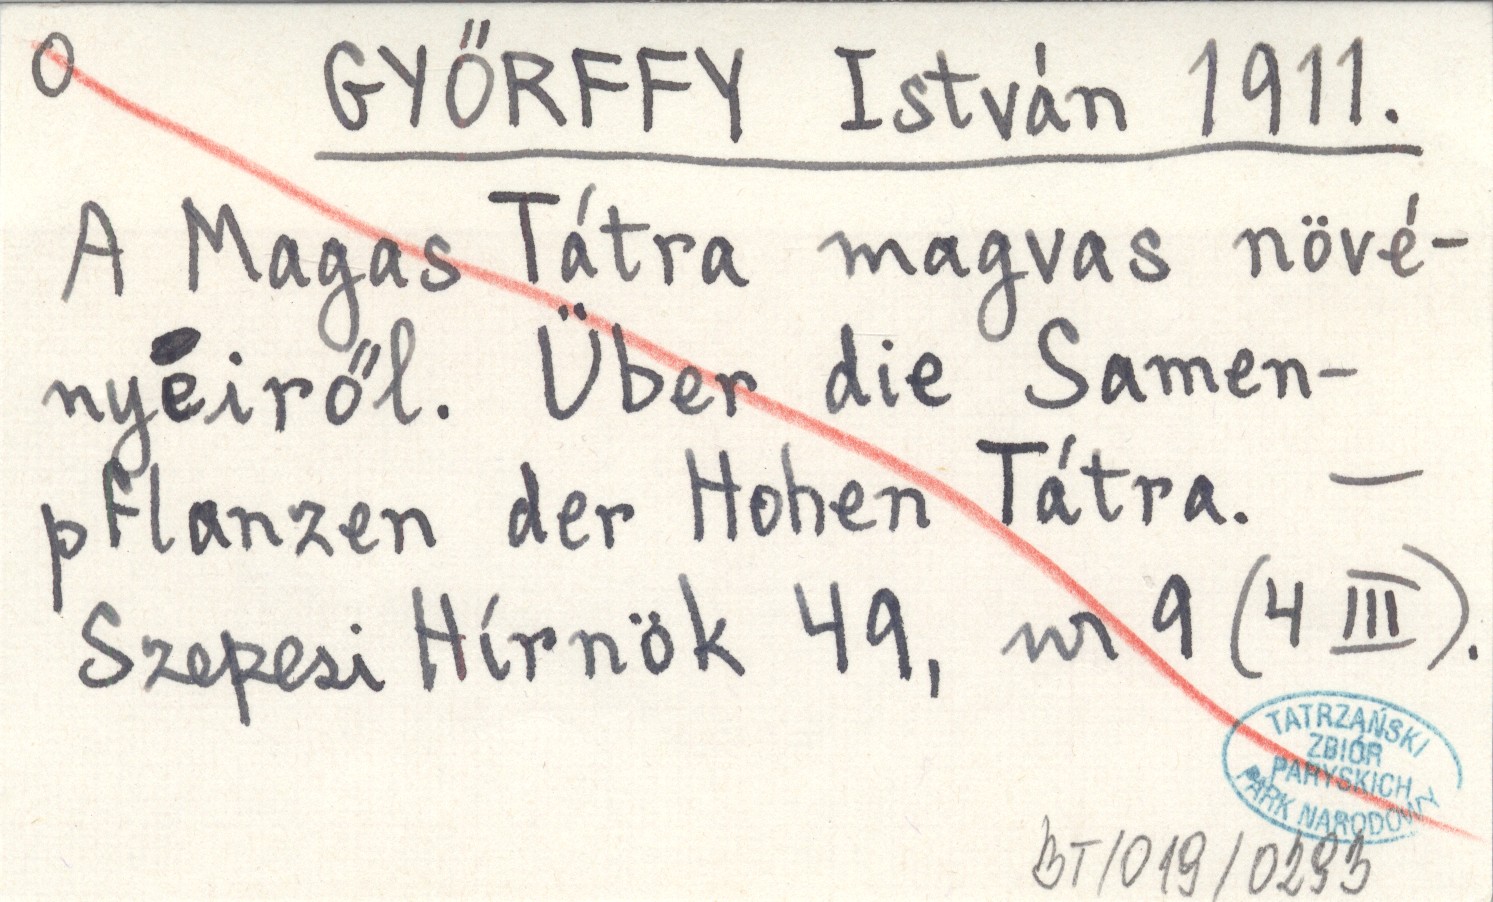 O GYŐRFFY István 1911.
A Magas Tátra magvas növé-
nyeiről. Über die Samen-
pflanzen der Hohen Tátra. —
Szepesi Hírnök 49, nr 9 (4 III).
TATRZAŃSKI
ZBIÓR
PARYSKICH
PARK NARODOWY
BT/019/0293